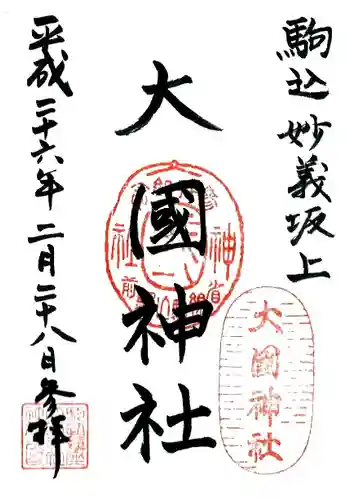 駒込 妙義坂上
大國神社
平成二十六年二月二十八日参拝
大国神社